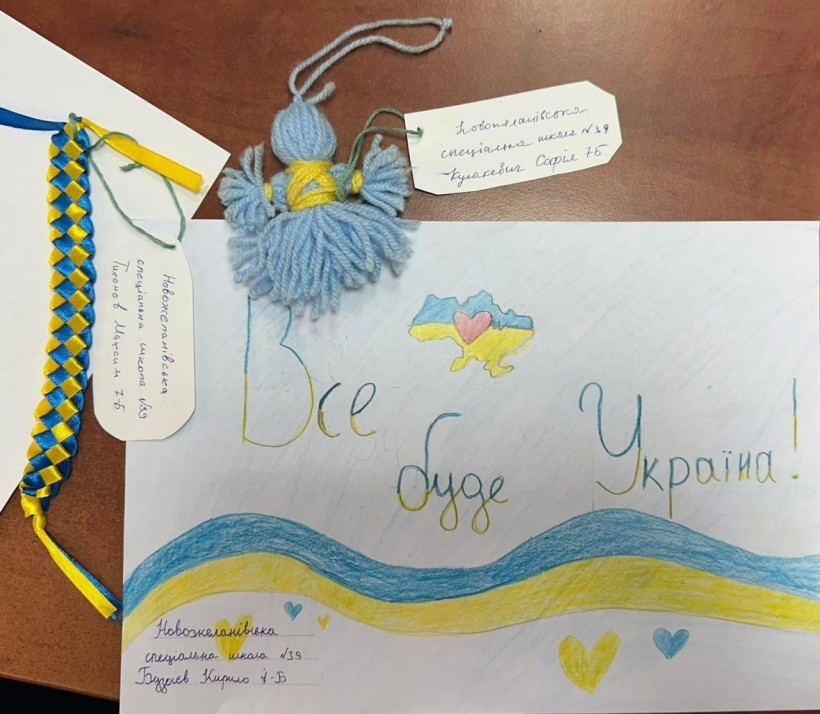 Новожеланівська
спеціальна школа №39
Кулакевич Софія 7Б
Новожеланівська
спеціальна школа №39
Тихонов Максим 7-Б
Все
буде
Україна!
Новожеланівська
спеціальна школа №39
Кирило